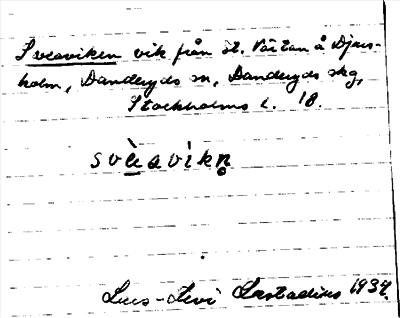 Sveaviken vik från st. Värtan å Djurs-
holm, Danderyds sn, Danderyds skg,
Stockholms l. 18.
svèavìkn̥
Lars-Levi Læstadius 1934.